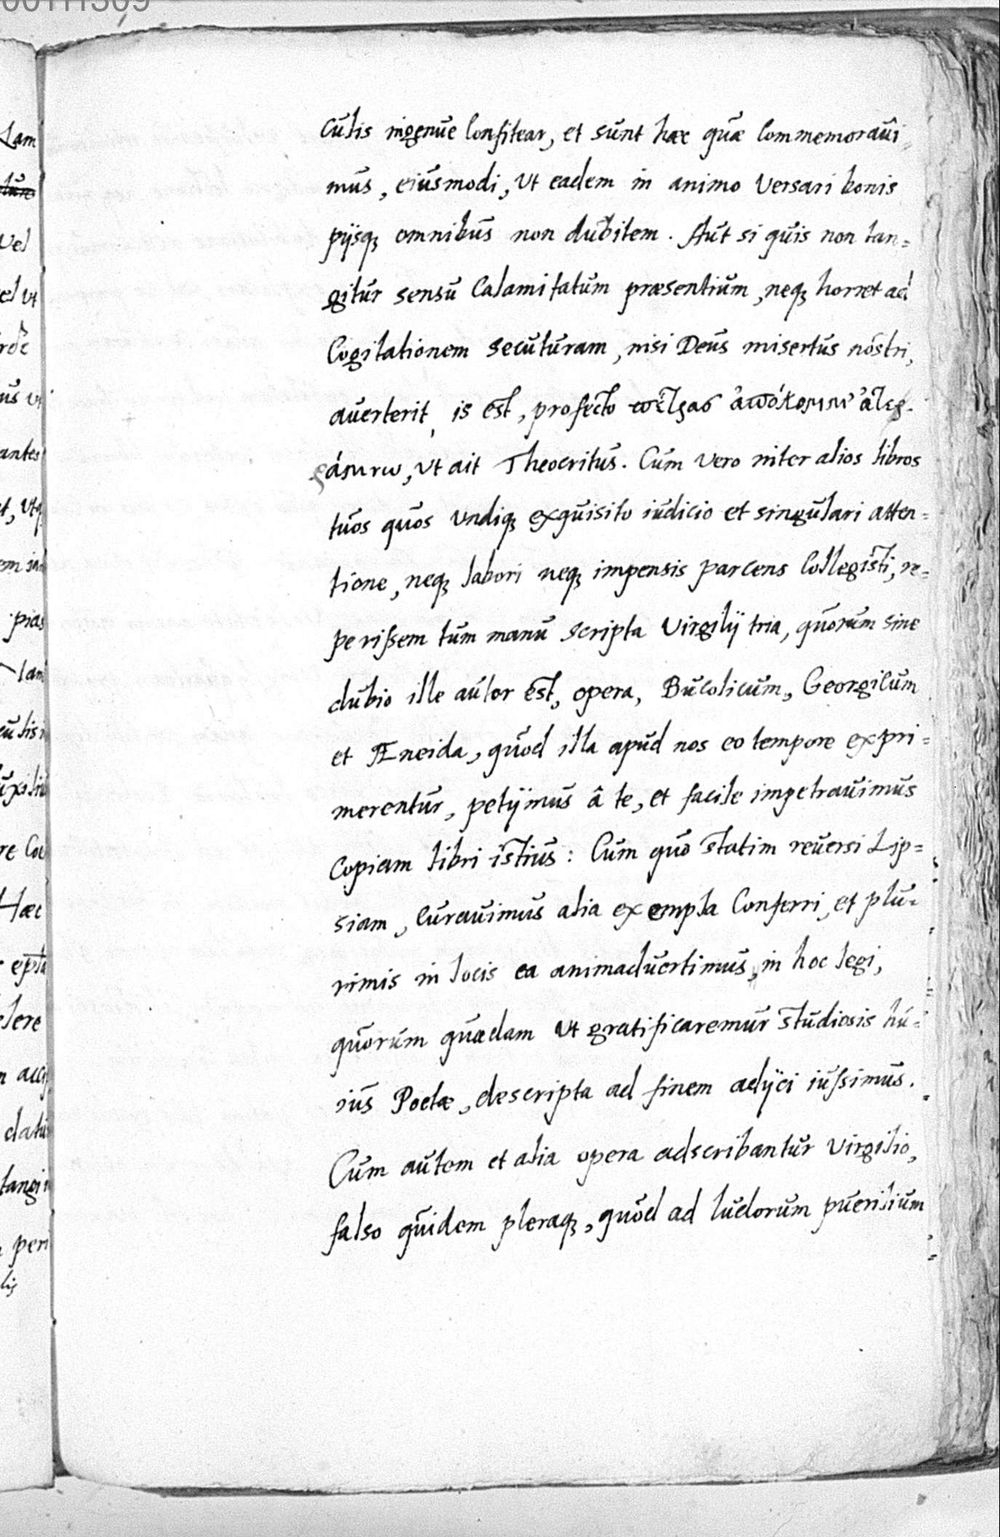 culis ingenue confitear, et sunt hæc quæ commemoraui
mus, eiusmodi, ut eadem in animo versari bonis
pijsq, omnibus non dubitem. Aut si quis non tan=
gitur sensu calamitatum præsentium, neq, horret ad
cogitationem secuturam, nisi Deus misertus nostri,
auerterit, is est, profecto
ut ait Theocritus. Cum vero inter alios libros
tuos quos undiq, exquisito iudicio et singulari atten=
tione, neq, labori neq, impensis parcens collegisti, re=
perissem tum manu scripta Virgilij tria, quorum sine
dubio ille autor est, opera, Bucolicum, Georgicum
et Æneida, quod illa apud nos eo tempore expri=
merentur, petijmus â te, et facile impetrauimus
copiam libri istius: Cum quo statim reuersi Lip=
siam, curauimus alia exempla conferri, et plu=
rimis in locis ea animaduertimus, in hoc legi,
quorum quædam ut gratificaremur studiosis hu=
ius Poetæ, descripta ad finem adijci iussimus.
Cum autem et alia opera adscribantur Virgilio,
falso quidem pleraq, quod ad ludorum puerilium